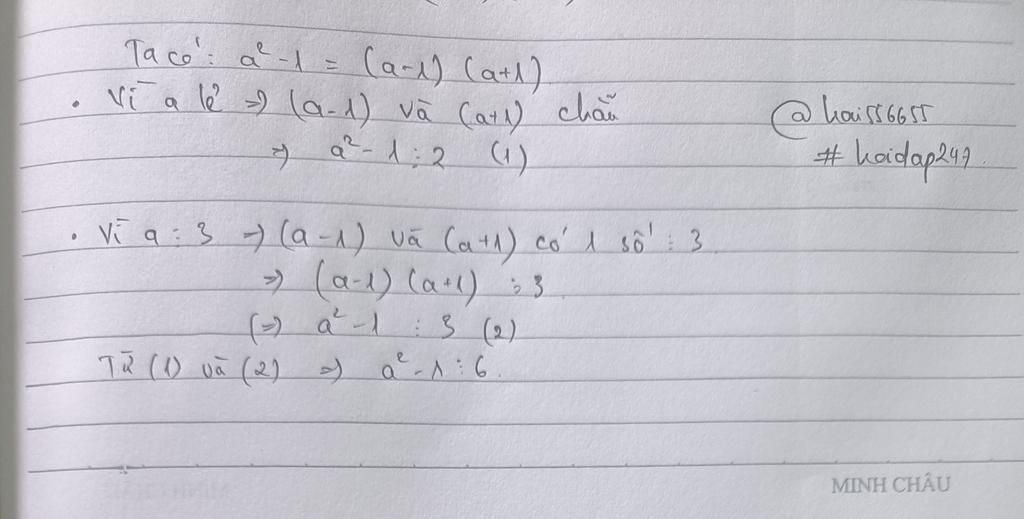 Ta có: a² - 1 = (a-1) (a+1)
. Vì a lẻ => (a-1) và (a+1) chẵn
=> a² - 1 ⋮ 2 (1)
@hoi556655
# hoidap247.
. Vì a ⋮ 3 => (a-1) và (a+1) có 1 số ⋮ 3
=> (a-1) (a+1) ⋮ 3
(=> a² - 1 ⋮ 3 (2)
Từ (1) và (2) => a² - 1 ⋮ 6.
MINH CHÂU